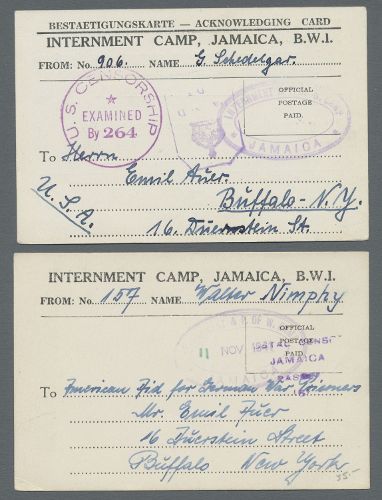 BESTAETIGUNGSKARTE — ACKNOWLEDGING CARD
INTERNMENT CAMP, JAMAICA, B.W.I.
FROM: No. 906. NAME G. Schedelgar.
U.S. CENSORSHIP
EXAMINED
By 264
OFFICIAL
POSTAGE
PAID.
INTERNMENT CAMP
JAMAICA
To Herrn
Emil Auer.
Buffalo - N.Y.
U.S.A.
16. Duerstein St.
INTERNMENT CAMP, JAMAICA, B.W.I.
FROM: No. 157 NAME Walter Nimphy
& P. OF W.
OFFICIAL
POSTAGE
PAID.
11 NOV
JAMAICA
To American Aid for German War Prisoners
Mr. Emil Auer
16 Duerstein Street
Buffalo New York
35-